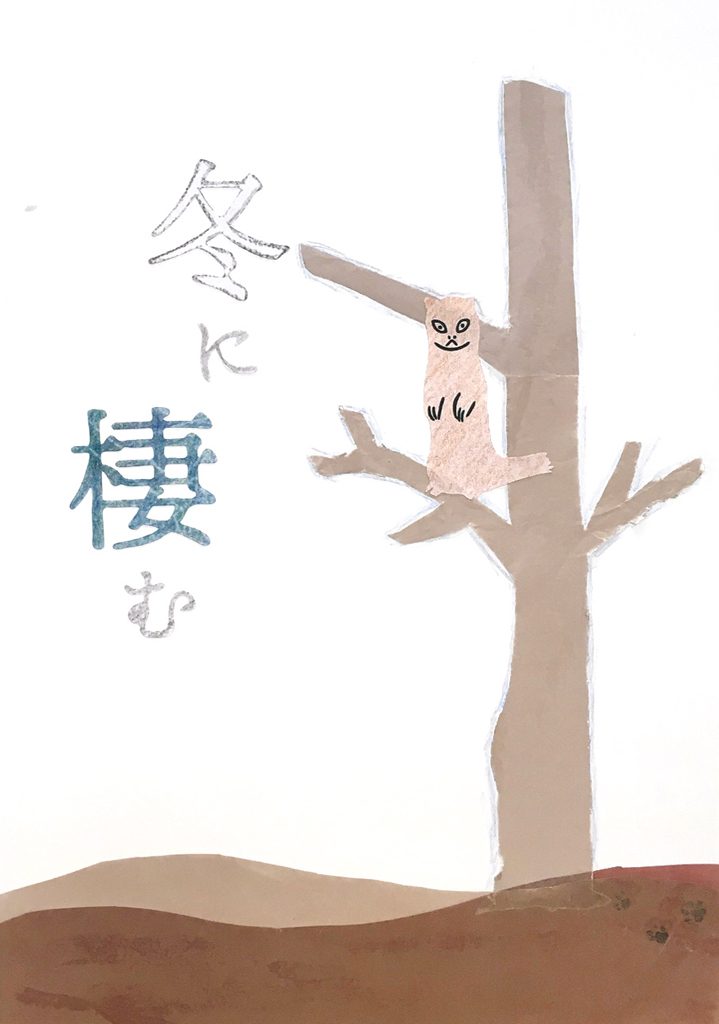 冬に棲む